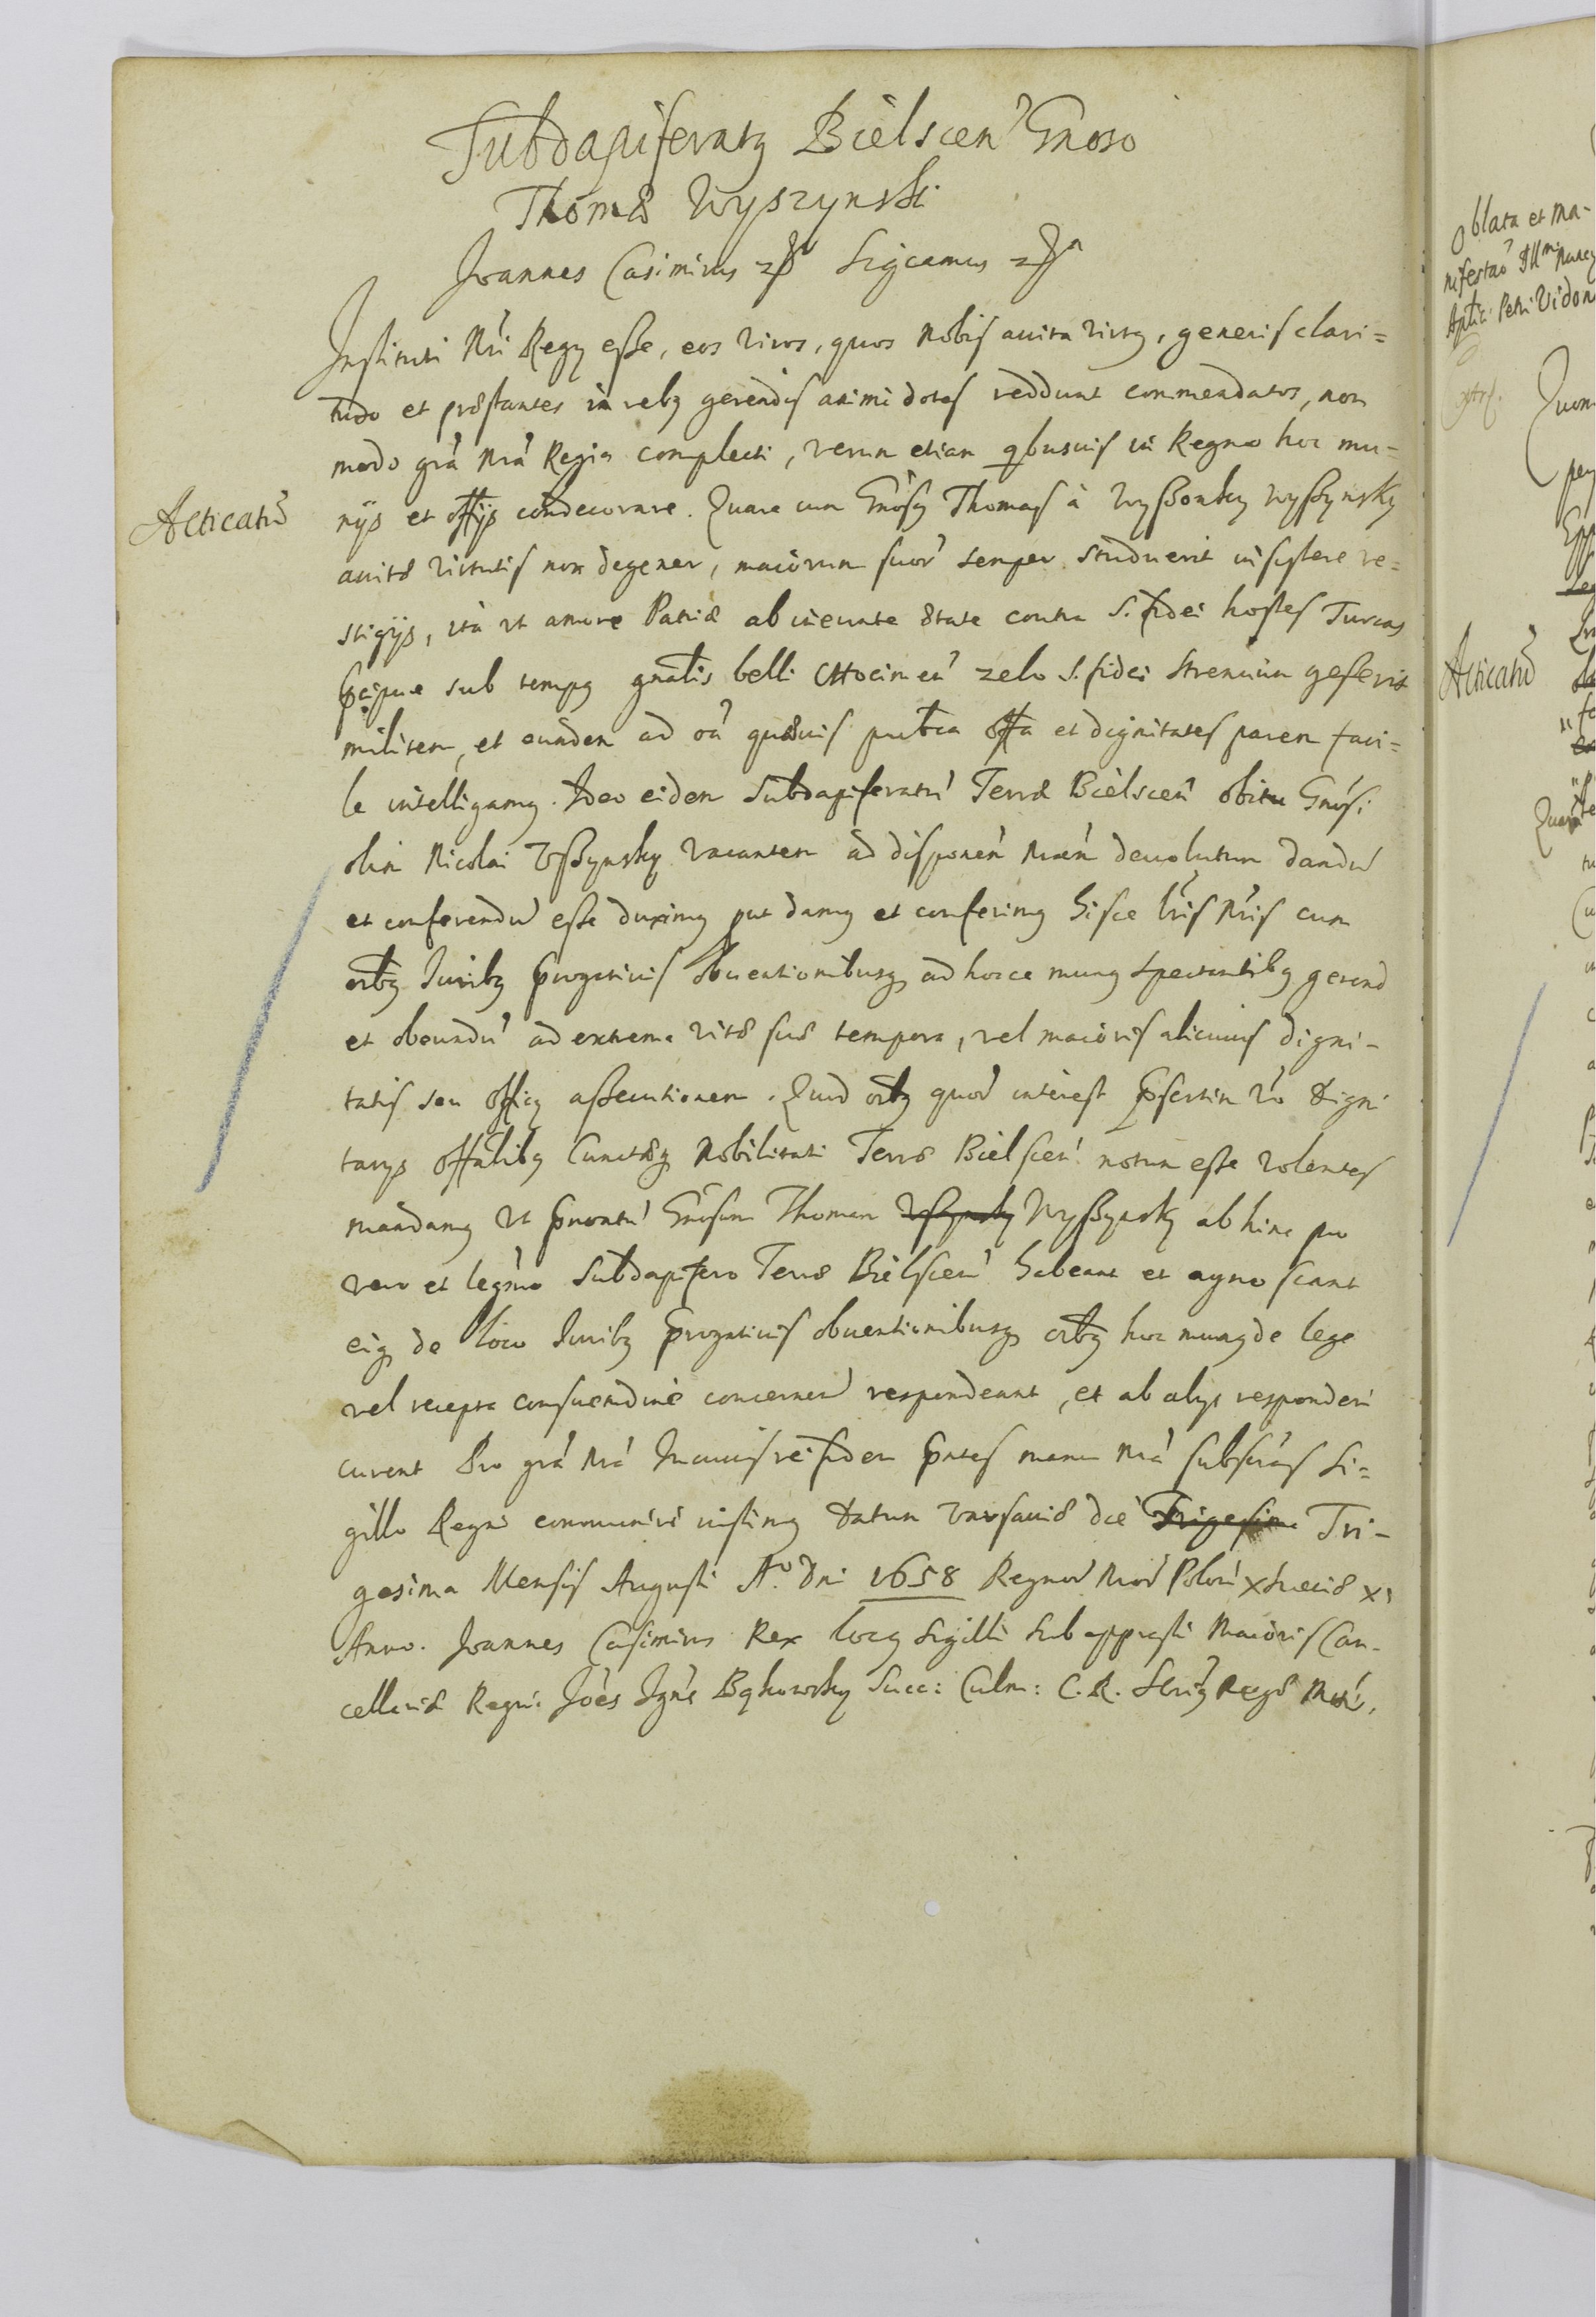 Subdapiferatq Bielscen Gnoso
Thomæ Wyszynski
Joannes Casimirus Sigcamus
Instituti Nri Regij esse, eos viros, quos nobis avita virtq, generis clari=
tudo et præstantes in rebq gerendis animi dotes reddunt commendatos, non
modo grã Nrã Regia complecti, verum etiam qbusvis in Regno hoc mu=
Acticatũ
nijs et offijs condecorare. Quare cum Gnosq Thomas à Wyßonky Wyßynsky
avitæ virtutis non degener, maiorum suor semper studuerit insistere ve=
stigijs, ita ut amore Patriæ ab ineunte ætate contra S. fidei hostes Turcas
Pcipue sub tempq gnalis belli zelo S. fidei strenuum gesserit
militem, et eundem ad oã quævis publica offa et dignitates parem faci=
le intelligamq. Ideo eidem Subdapiferatũ Terræ Bielscen obitu Gnosi
olim Nicolai Vßynsky vacantem ad disponen nram devolutum dandũ
et conferendũ esse duximq put damq et conferimq hisce lris Nris cum
oibq Juribq Prrogativis obventionibusq ad hocce munq spectantibq gerend
et obeundũ ad extrema vitæ suæ tempora, vel maioris alicuius digni-
tatis seu officij assecutionem. Quod oibq quor interest Psertim vo digni
tarijs offalibq Cunctæq Nobilitati Terræ Bielscen notum esse volentes
mandamq ut Pnoiatũ Gnosum Thomam Vßynsky Wyßynsky ab hinc pro
vero et legmo Subdapifero Terræ Bielscen habeant et agnoscant
eiq de loco Juribq Prrogativis obventionibusq oibq hoc munq de lege
vel recepta consuetudine concernen respondeant, et ab alijs responderi
curent Pro grã Nrã In cuius rei fidem Pntes manu Nrã subscras Si=
gillo Regni communiri iussimq Datum Varsaviæ die Trigesima Tri-
gesima Mensis Augusti Aº Dni 1658 Regnor Nror Polon X Sueciæ XI
Anno. Joannes Casimirus Rex locq Sigilli sub appressi Maioris Can-
cellariæ Regni. Joes Ignẽ Bąkowsky Succ: Culm: C. R.
Oblata et Ma-
nifestao
Petri Vidon
Acticatũ